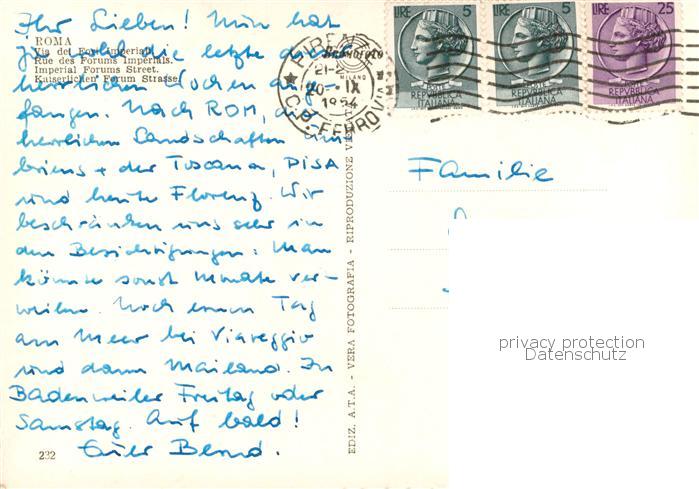 Ihr Lieben! Nun hat
ROMA
Via dei Fori Imperiali
Rue des Forums Impérials.
Imperial Forums Street.
Kaiserlichen Forum Strasse.
ja wohl die letzte dieser
herrlichen Wochen ange-
fangen. Nach ROM, die
herrlichen Landschaften Um-
briens + der Toscana, PISA
und heute Florenz. Wir
beschränken uns sehr in
den Besichtigungen: Man
könnte sonst Monate ver-
weilen. Noch einen Tag
am Meer bei Viareggio
und dann Mailand. In
Badenweiler Freitag oder
Samstag. Auf bald!
Euer Bernd.
232
EDIZ. A.T.A. - VERA FOTOGRAFIA - RIPRODUZIONE VIETATA
FIRENZE
MILANO
IX
1954
C.P. FERROVIA
LIRE 5
REPVBBLICA
ITALIANA
LIRE 5
REPVBBLICA
ITALIANA
LIRE 25
REPVBBLICA
ITALIANA
Familie
privacy protection
Datenschutz